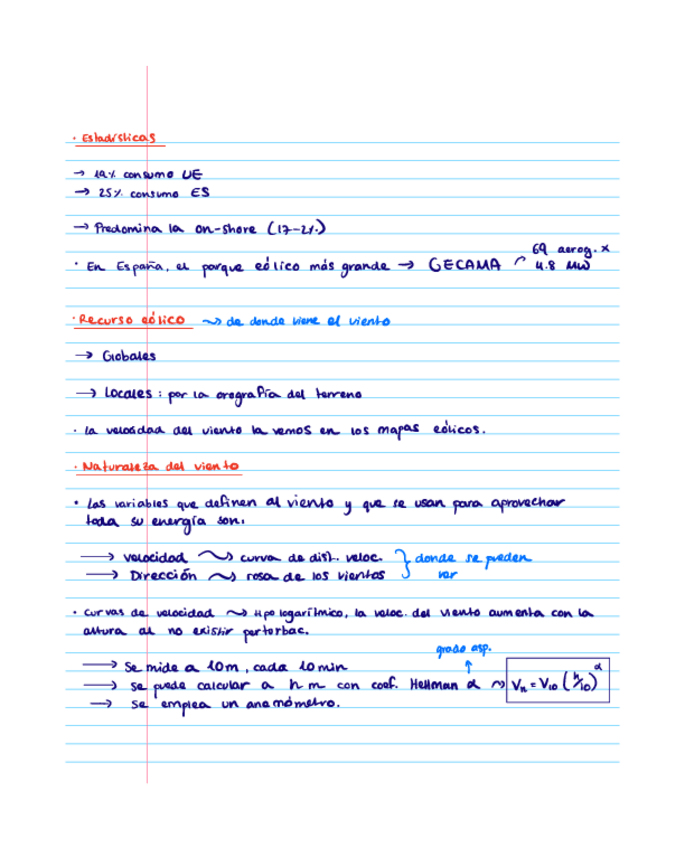 · Estadísticas
→ 19% consumo UE
→ 25% consumo ES
→ Predomina la on-shore (17-2%)
· En España, el parque eólico más grande → GECAMA 69 aerog. x
4.8 MW
· Recurso eólico ~> de donde viene el viento
→ Globales
→ Locales : por la orografía del terreno
· La velocidad del viento la vemos en los mapas eólicos.
· Naturaleza del viento
• Las variables que definen al viento y que se usan para aprovechar
toda su energía son:
→ Velocidad ~> curva de dist. veloc. } donde se pueden
→ Dirección ~> rosa de los vientos } ver
• Curvas de velocidad ~> tipo logarítmico, la veloc. del viento aumenta con la
altura al no existir perturbac.
grado asp.
→ Se mide a 10m, cada 10 min
→ Se puede calcular a h m con coef. Hellman α ~> Vn = V10 (h/10)^α
→ Se emplea un anamómetro.